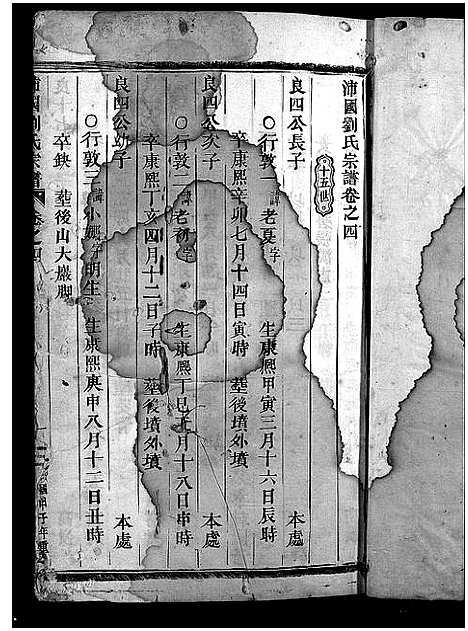 沛國劉氏宗譜卷之四
十五世
良四公長子 本處
○行敦一諱老夏字 生康熙甲寅三月十六日辰時
卒康熙辛卯七月十四日寅時 塟後墳外墳
良四公次子 本處
○行敦二諱老 字 生康熙丁巳 月十八日申時
卒康熙丁亥四月十二日子時 塟後墳外墳
良四公幼子 本處
○行敦三諱小 字明生 生康熙庚申八月十二日丑時
卒缺 塟後山大巖脚
沛國劉氏宗譜 卷之四